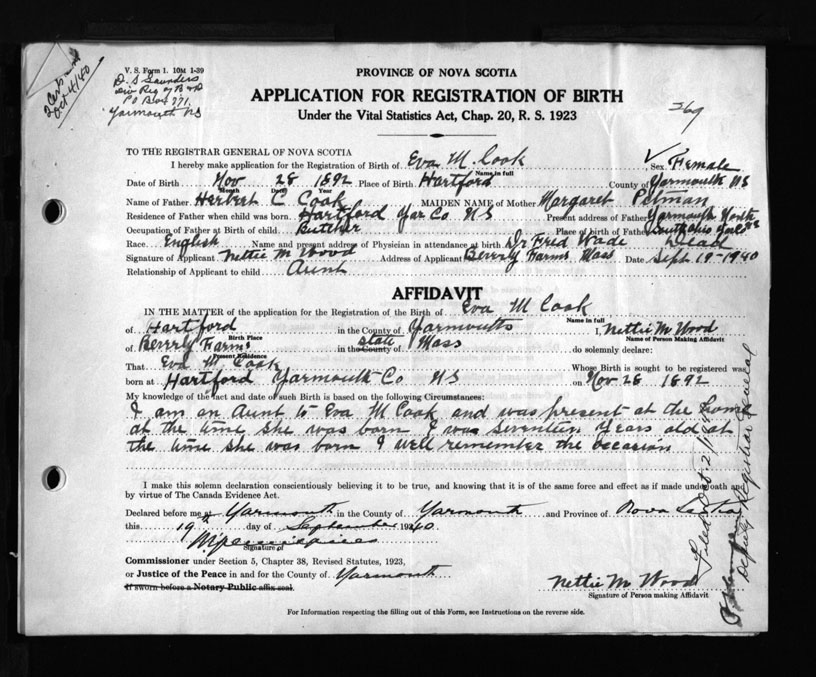 V. S. Form 1. 10M 1-39
Oct 4/40
D. S. Saunders
Div Reg of B & D
PO Box 771,
Yarmouth NS
PROVINCE OF NOVA SCOTIA
APPLICATION FOR REGISTRATION OF BIRTH
Under the Vital Statistics Act, Chap. 20, R. S. 1923
369
TO THE REGISTRAR GENERAL OF NOVA SCOTIA
I hereby make application for the Registration of Birth of Eva M. Cook Sex Female
Name in full
Date of Birth Nov 28 1892 Place of Birth Hartford County of Yarmouth NS
Month Date Year
Name of Father Herbert C Cook MAIDEN NAME of Mother Margaret Pitman
Residence of Father when child was born Hartford Yar Co NS Present address of Father Yarmouth North
Occupation of Father at Birth of child Butcher Place of birth of Father South Ohio Yar Co NS
Race English Name and present address of Physician in attendance at birth Dr Fred Wade Dead
Signature of Applicant Nettie M Wood Address of Applicant Beverly Farms Mass Date Sept 19-1940
Relationship of Applicant to child Aunt
AFFIDAVIT
IN THE MATTER of the application for the Registration of the Birth of Eva M Cook
Name in full
of Hartford in the County of Yarmouth I, Nettie M Wood
Birth Place Name of Person Making Affidavit
of Beverly Farms in the County of state Mass do solemnly declare:
Present Residence
That Eva M. Cook Whose Birth is sought to be registered was
born at Hartford Yarmouth Co NS on Nov 28 1892
My knowledge of the fact and date of such Birth is based on the following Circumstances:
I am an aunt to Eva M Cook and was present at the home
at the time she was born I was seventeen years old at
the time she was born I well remember the occasion
I make this solemn declaration conscientiously believing it to be true, and knowing that it is of the same force and effect as if made under oath and
by virtue of The Canada Evidence Act.
Declared before me at Yarmouth in the County of Yarmouth and Province of Nova Scotia
this 19th day of September 1940.
Signature of
Commissioner under Section 5, Chapter 38, Revised Statutes, 1923,
or Justice of the Peace in and for the County of Yarmouth
If sworn before a Notary Public affix seal.
Nettie M Wood
Signature of Person making Affidavit
For Information respecting the filling out of this Form, see Instructions on the reverse side.
Filed Oct
Deputy Registrar General